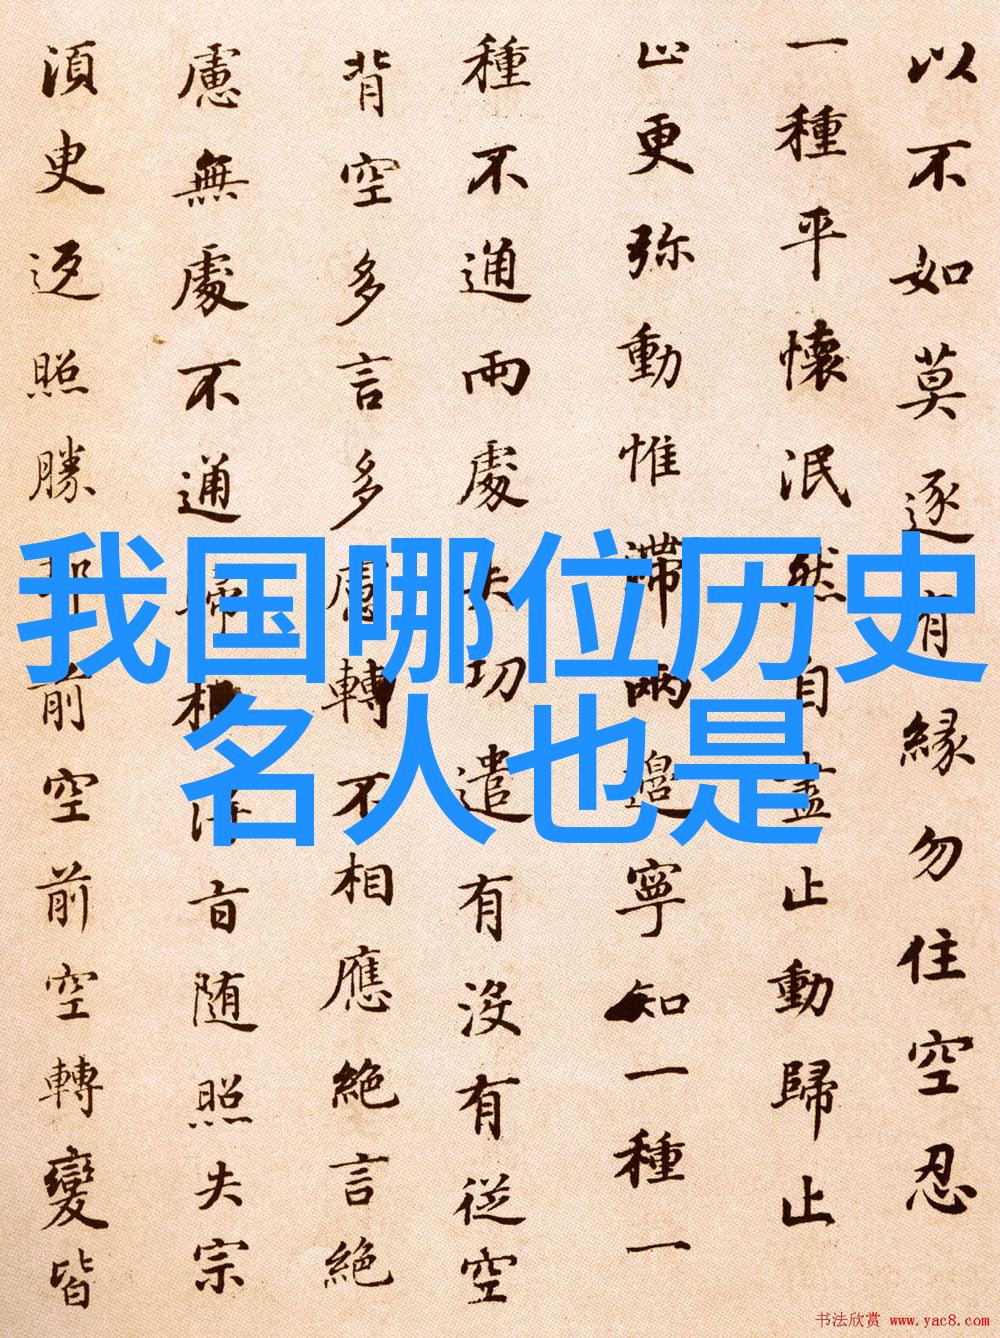 我国哪位历史
名人也是
以不如莫逐有緣勿住空忍
一種平懷泯然自盡止動歸止
止更弥動惟滯兩邊寧知一種一
種不通兩處失功遣有没有從空
背空多言多慮轉不相應絶言絶
慮無處不通歸根得旨随照失宗
湏臾返照勝却前空前空轉變皆
书法欣赏 www.yac8.com